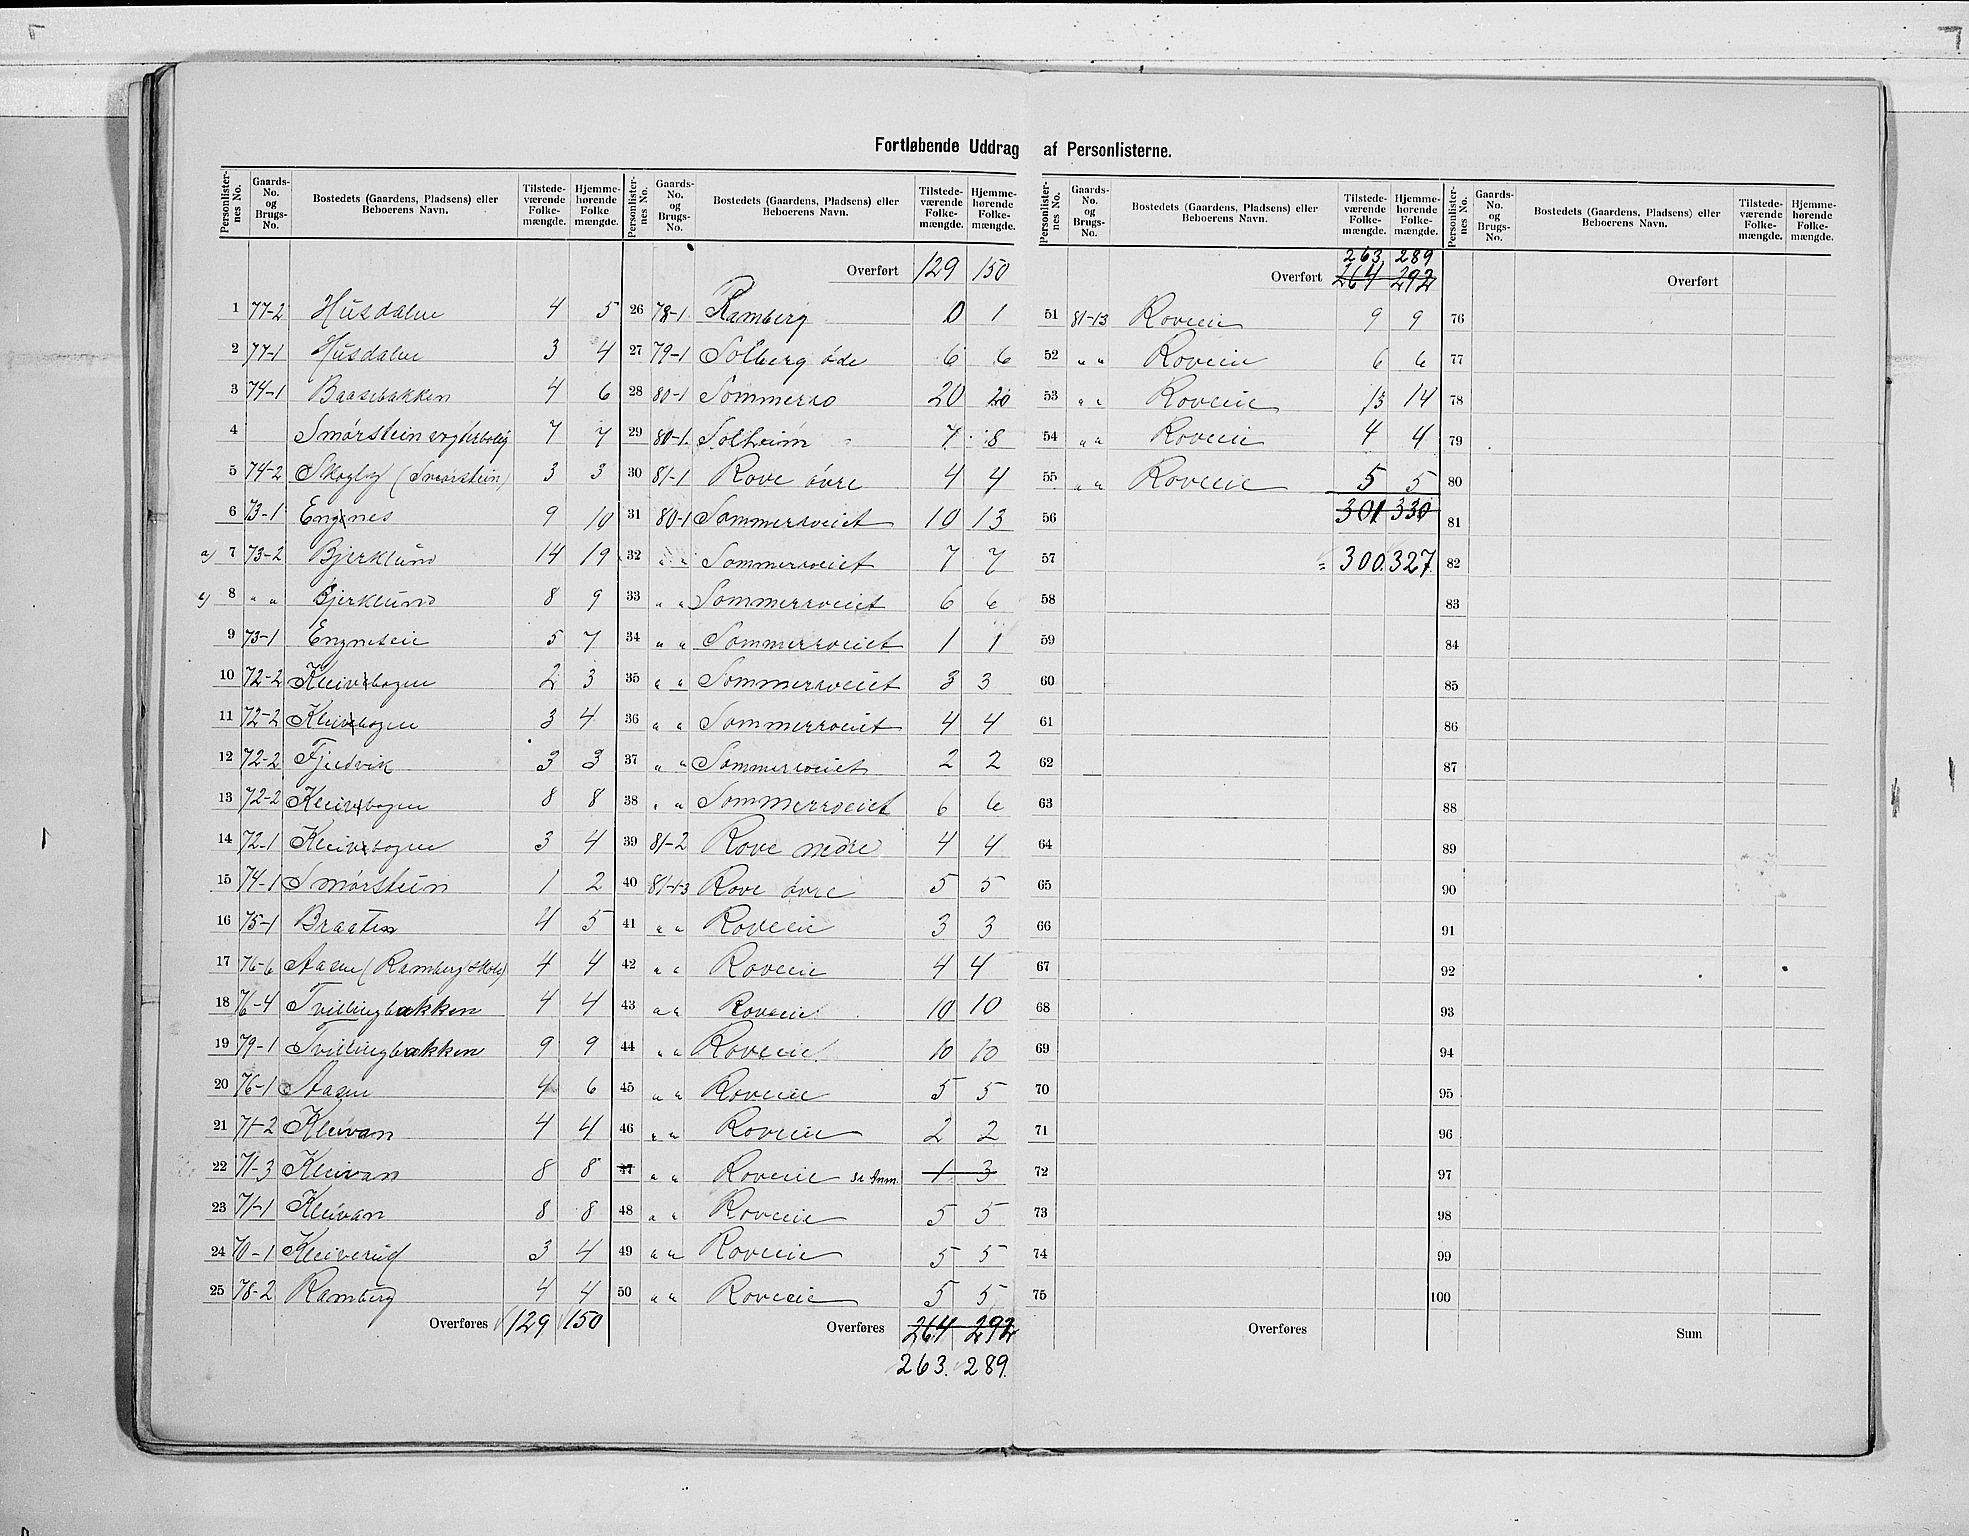 Fortløbende Uddrag af Personlisterne.
Personlisternes No. | Gaards-No. og Brugs-No. | Bostedets (Gaardens, Pladsens) eller Beboerens Navn. | Tilstedeværende Folkemængde. | Hjemmehørende Folkemængde.
1 77-2 Husdalen 4 5
2 77-1 Husdalen 3 4
3 74-1 Baasebakken 4 6
4 Smørstein vogterbolig 7 7
5 74-2 Skogly (Smørstein) 3 3
6 73-1 Engnes 9 10
a) 7 73-2 Bjerklund 14 19
8 " " Bjerklund 8 9
9 73-1 Engneseie 5 7
10 72-2 Kleivbogen 2 3
11 72-2 Kleivbogen 3 4
12 72-2 Fjeldvik 3 3
13 72-2 Kleivbogen 8 8
14 72-1 Kleivbogen 3 4
15 74-1 Smørstein 1 2
16 75-1 Braaten 4 5
17 76-6 Aasen (Ramberg skole) 4 4
18 76-4 Tvillingbakken 4 4
19 79-1 Tvillingbakken 9 9
20 76-1 Aasen 4 6
21 71-2 Kleivan 4 4
22 71-3 Kleivan 8 8
23 71-1 Kleivan 8 8
24 70-1 Kleiverud 3 4
25 78-2 Ramberg 4 4
Overføres 129 150
Personlisternes No. | Gaards-No. og Brugs-No. | Bostedets (Gaardens, Pladsens) eller Beboerens Navn. | Tilstedeværende Folkemængde. | Hjemmehørende Folkemængde.
Overført 129 150
26 78-1 Ramberg 0 1
27 79-1 Solberg øde 6 6
28 80-1 Sommerro 20 20
29 80-1 Solheim 7 8
30 81-1 Rove øvre 4 4
31 80-1 Sommerroeiet 10 13
32 " " Sommerroeiet 7 7
33 " " Sommerroeiet 6 6
34 " " Sommerroeiet 1 1
35 " " Sommerroeiet 3 3
36 " " Sommerroeiet 4 4
37 " " Sommerroeiet 2 2
38 " " Sommerroeiet 6 6
39 81-2 Rove nedre 4 4
40 81-13 Rove øvre 5 5
41 " " Roveeie 3 3
42 " " Roveeie 4 4
43 " " Roveeie 10 10
44 " " Roveeie 10 10
45 " " Roveeie 5 5
46 " " Roveeie 2 2
47 " " Roveeie se Anm. 1 3
48 " " Roveeie 5 5
49 " " Roveeie 5 5
50 " " Roveeie 5 5
Overføres 264 292
263. 289.
Personlisternes No. | Gaards-No. og Brugs-No. | Bostedets (Gaardens, Pladsens) eller Beboerens Navn. | Tilstedeværende Folkemængde. | Hjemmehørende Folkemængde.
263. 289
Overført 264 292
51 81-13 Roveeie 9 9
52 " " Roveeie 6 6
53 " " Roveeie 13 14
54 " " Roveeie 4 4
55 " " Roveeie 5 5
56 301 330
57 = 300. 327.
58
59
60
61
62
63
64
65
66
67
68
69
70
71
72
73
74
75
Overføres
Personlisternes No. | Gaards-No. og Brugs-No. | Bostedets (Gaardens, Pladsens) eller Beboerens Navn. | Tilstedeværende Folkemængde. | Hjemmehørende Folkemængde.
Overført
76
77
78
79
80
81
82
83
84
85
86
87
88
89
90
91
92
93
94
95
96
97
98
99
100
Sum